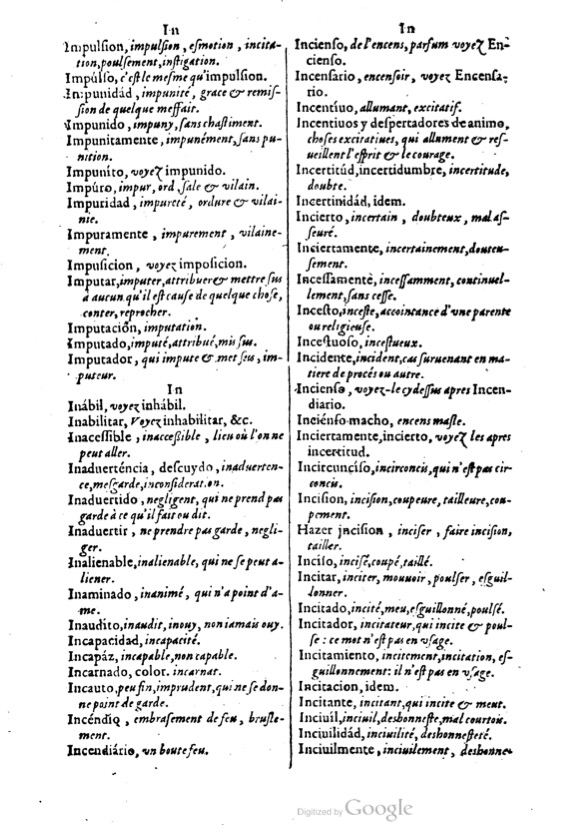 In
Impulsion, impulsion, esmotion, incita-
tion, poulsement, instigation.
Impúlso, c'est le mesme qu'impulsion.
Impunidád, impunité, grace & remis-
sion de quelque meffait.
Impunido, impuny, sans chastiment.
Impunitamente, impunément, sans pu-
nition.
Impuníto, voyez impunido.
Impúro, impur, ord, sale & vilain.
Impuridad, impureté, ordure & vilai-
nie.
Impuramente, impurement, vilaine-
ment.
Impusicion, voyez imposicion.
Imputar, imputer, attribuer & mettre sus
à aucun qu'il est cause de quelque chose,
conter, reprocher.
Imputación, imputation.
Imputado, imputé, attribué, mis sus.
Imputador, qui impute & met seu, im-
puteur.
In
Inábil, voyez inhábil.
Inabilitar, Voyez inhabilitar, &c.
Inacessible, inaccessible, lieu où l'on ne
peut aller.
Inaduerténcia, descuydo, inaduerten-
ce, mesgarde, inconsideration.
Inaduertido, negligent, qui ne prend pas
garde à ce qu'il fait ou dit.
Inaduertir, ne prendre pas garde, negli-
ger.
Inalienable, inalienable, qui ne se peut a-
liener.
Inaminado, inanimé, qui n'a point d'a-
me.
Inaudito, inaudit, inouy, non iamais ouy.
Incapacidad, incapacité.
Incapáz, incapable, non capable.
Incarnado, color. incarnat.
Incauto, peu fin, imprudent, qui ne se don-
ne point de garde.
Incéndio, embrasement de feu, brusle-
ment.
Incendiário, un boutefeu.
In
Incienso, de l'encens, parfum voyez En-
cienso.
Incensario, encensoir, voyez Encensa-
rio.
Incentíuo, allumant, excitatif.
Incentiuos y despertadores de animo,
choses excitatiues, qui allument & res-
ueillent l'esprit & le courage.
Incertitúd, incertidumbre, incertitude,
doubte.
Incertinidád, idem.
Incierto, incertain, doubteux, mal as-
seuré.
Inciertamente, incertainement, douteu-
sement.
Incessamente, incessamment, continuel-
lement, sans cesse.
Incesto, inceste, accointance d'une parente
ou religieuse.
Incestuoso, incestueux.
Incidente, incident, cas suruenant en ma-
tiere de procés ou autre.
Inciense, voyez-le cy dessus apres Incen-
diario.
Inciénso macho, encens masle.
Inciertamente, incierto, voyez les apres
incertitud.
Incircunciso, incirconcis, qui n'est pas cir-
concis.
Incision, incision, coupeure, tailleure, cou-
pement.
Hazer jncision, inciser, faire incision,
tailler.
Inciso, incisé, coupé, taillé.
Incitar, inciter, mouuoir, poulser, esguil-
lonner.
Incitado, incité, meu, esguillonné, poulsé.
Incitador, incitateur, qui incite & poul-
se : ce mot n'est pas en usage.
Incitamiento, incitement, incitation, es-
guillonnement: il n'est pas en usage.
Incitacion, idem.
Incitante, incitant, qui incite & meut.
Inciuíl, inciuil, deshonneste, mal courtois.
Inciuilidád, inciuilité, deshonnesteté.
Inciuilmente, inciuilement, deshonne-
Digitized by Google